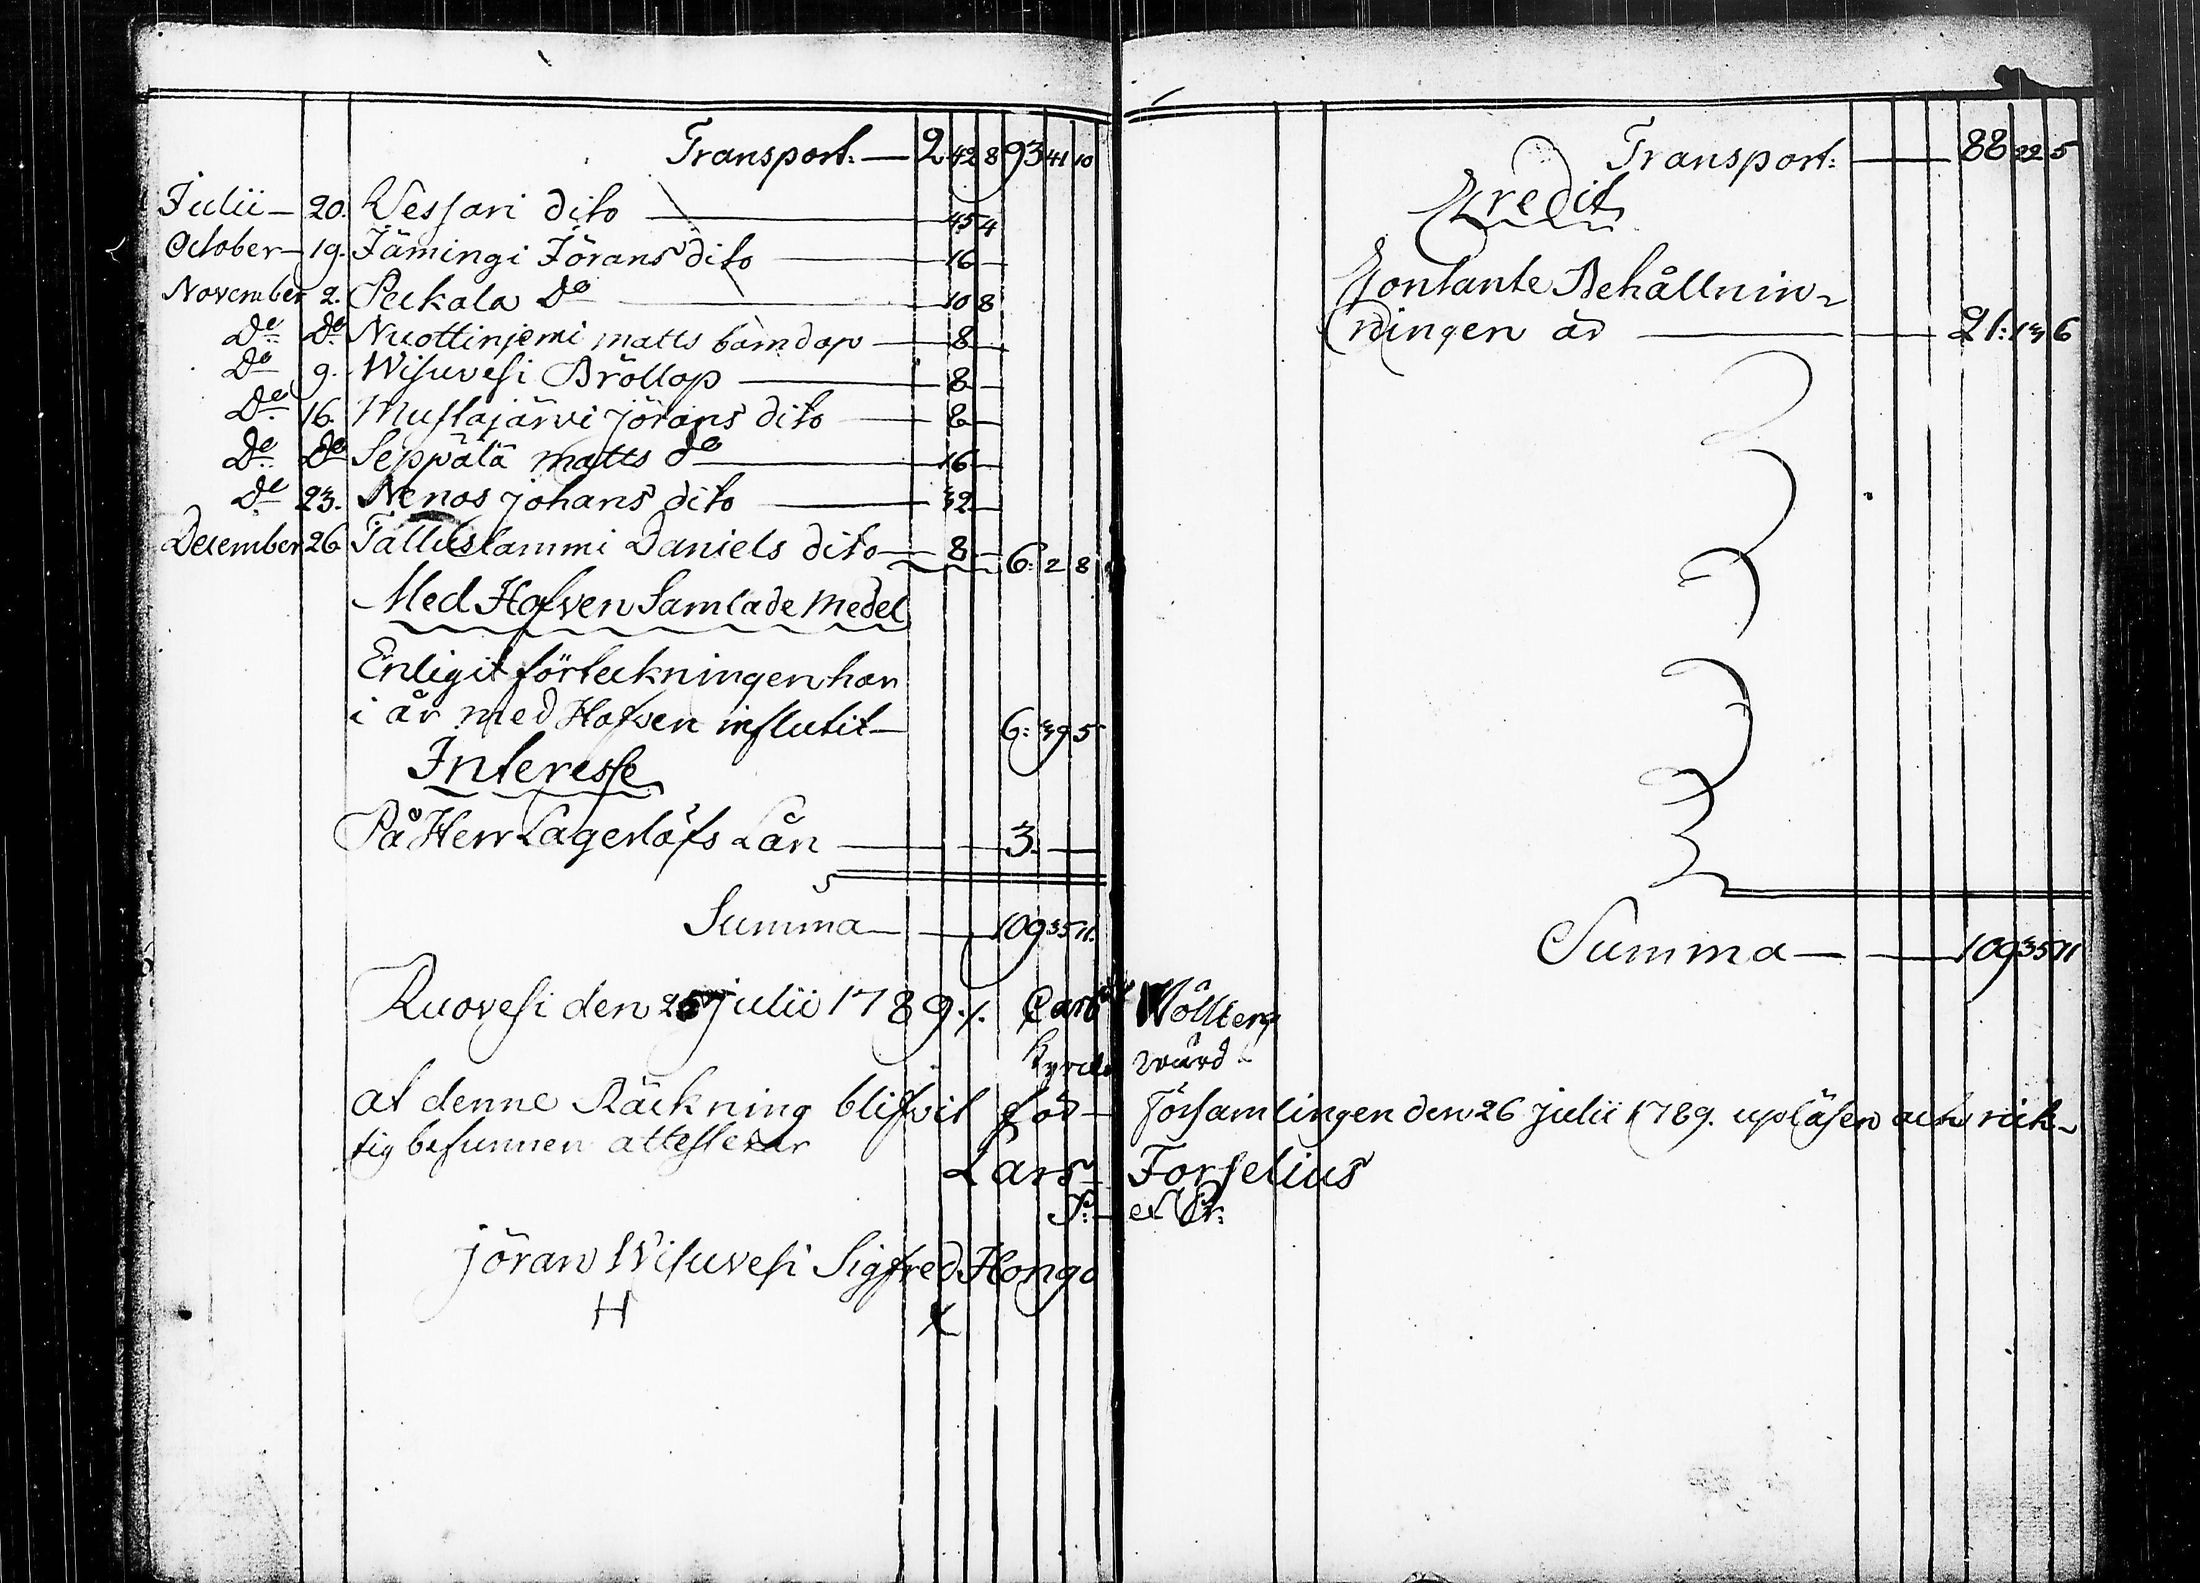 Transport: — 2 42 8 93 41 10
Julii — 20. Wessari dito — 45 4
October — 19. Jämingi Jörans dito — 16 —
November 2. Peckala Do — 10 8
Do Do Nuottinjemi matts barndop — 8 —
Do 9. Wisuvesi Bröllop — 8 —
Do 16. Mustajärvi jörans dito — 8 —
Do Do Seppälä matts do — 16 —
Do 23. Nenos johans dito — 32 —
December 26 Jälluslammi Daniels dito — 8 — 6: 2 8
Med Hofven Samlade Medel
Enligit förteckningen har
i år med Hofven influtit — 6: 39 5
Interesse
På Herr Lagerlöfs Lån — 3. —
Summa — 109 35 11.
Ruovesi den 25 julii 1789 ./.
Transport: — 88 22 5
Kredit
Kontante Behållnin-
ningen är — 21: 13 6
Summa — 109 35 11
Carl Wöllberg
Kyrcko wärd
at denne Räckning blifvit för Församlingen den 26 julii 1789. upläsen och rick-
tig befunnen attesterar
Lars Forselius
P: et Pr:
jöran Wisuvesi Sigfred Hongo
H X